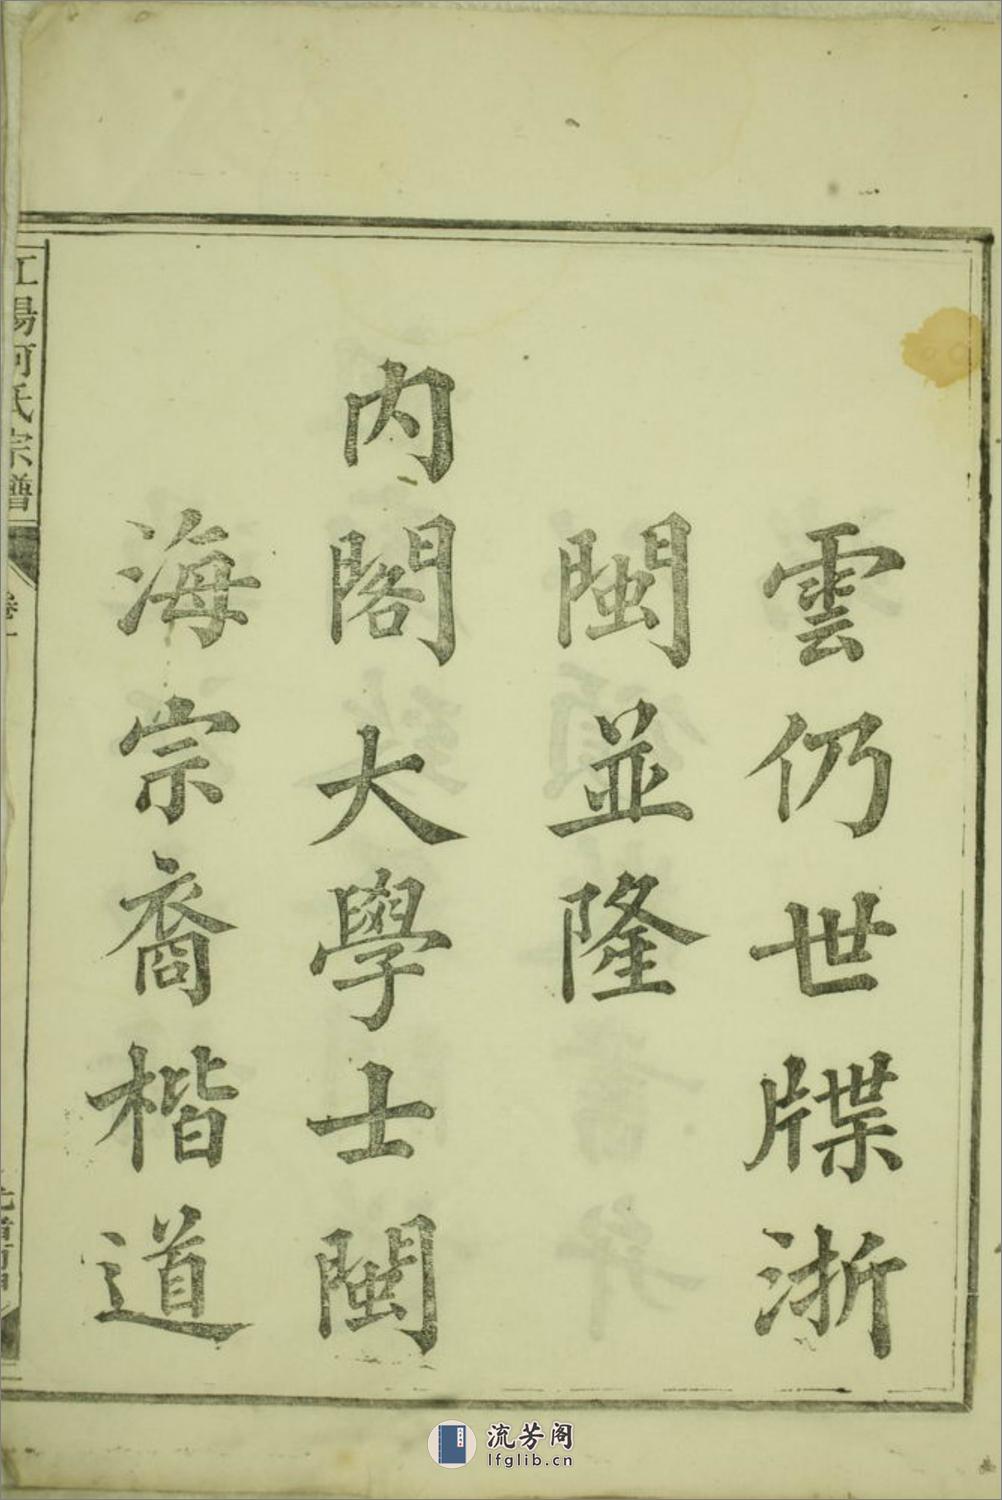 雲仍世牒浙
閩並隆
内閣大學士閩
海宗裔楷道
江陽何氏宗譜
卷一
流芳阁
lfglib.cn